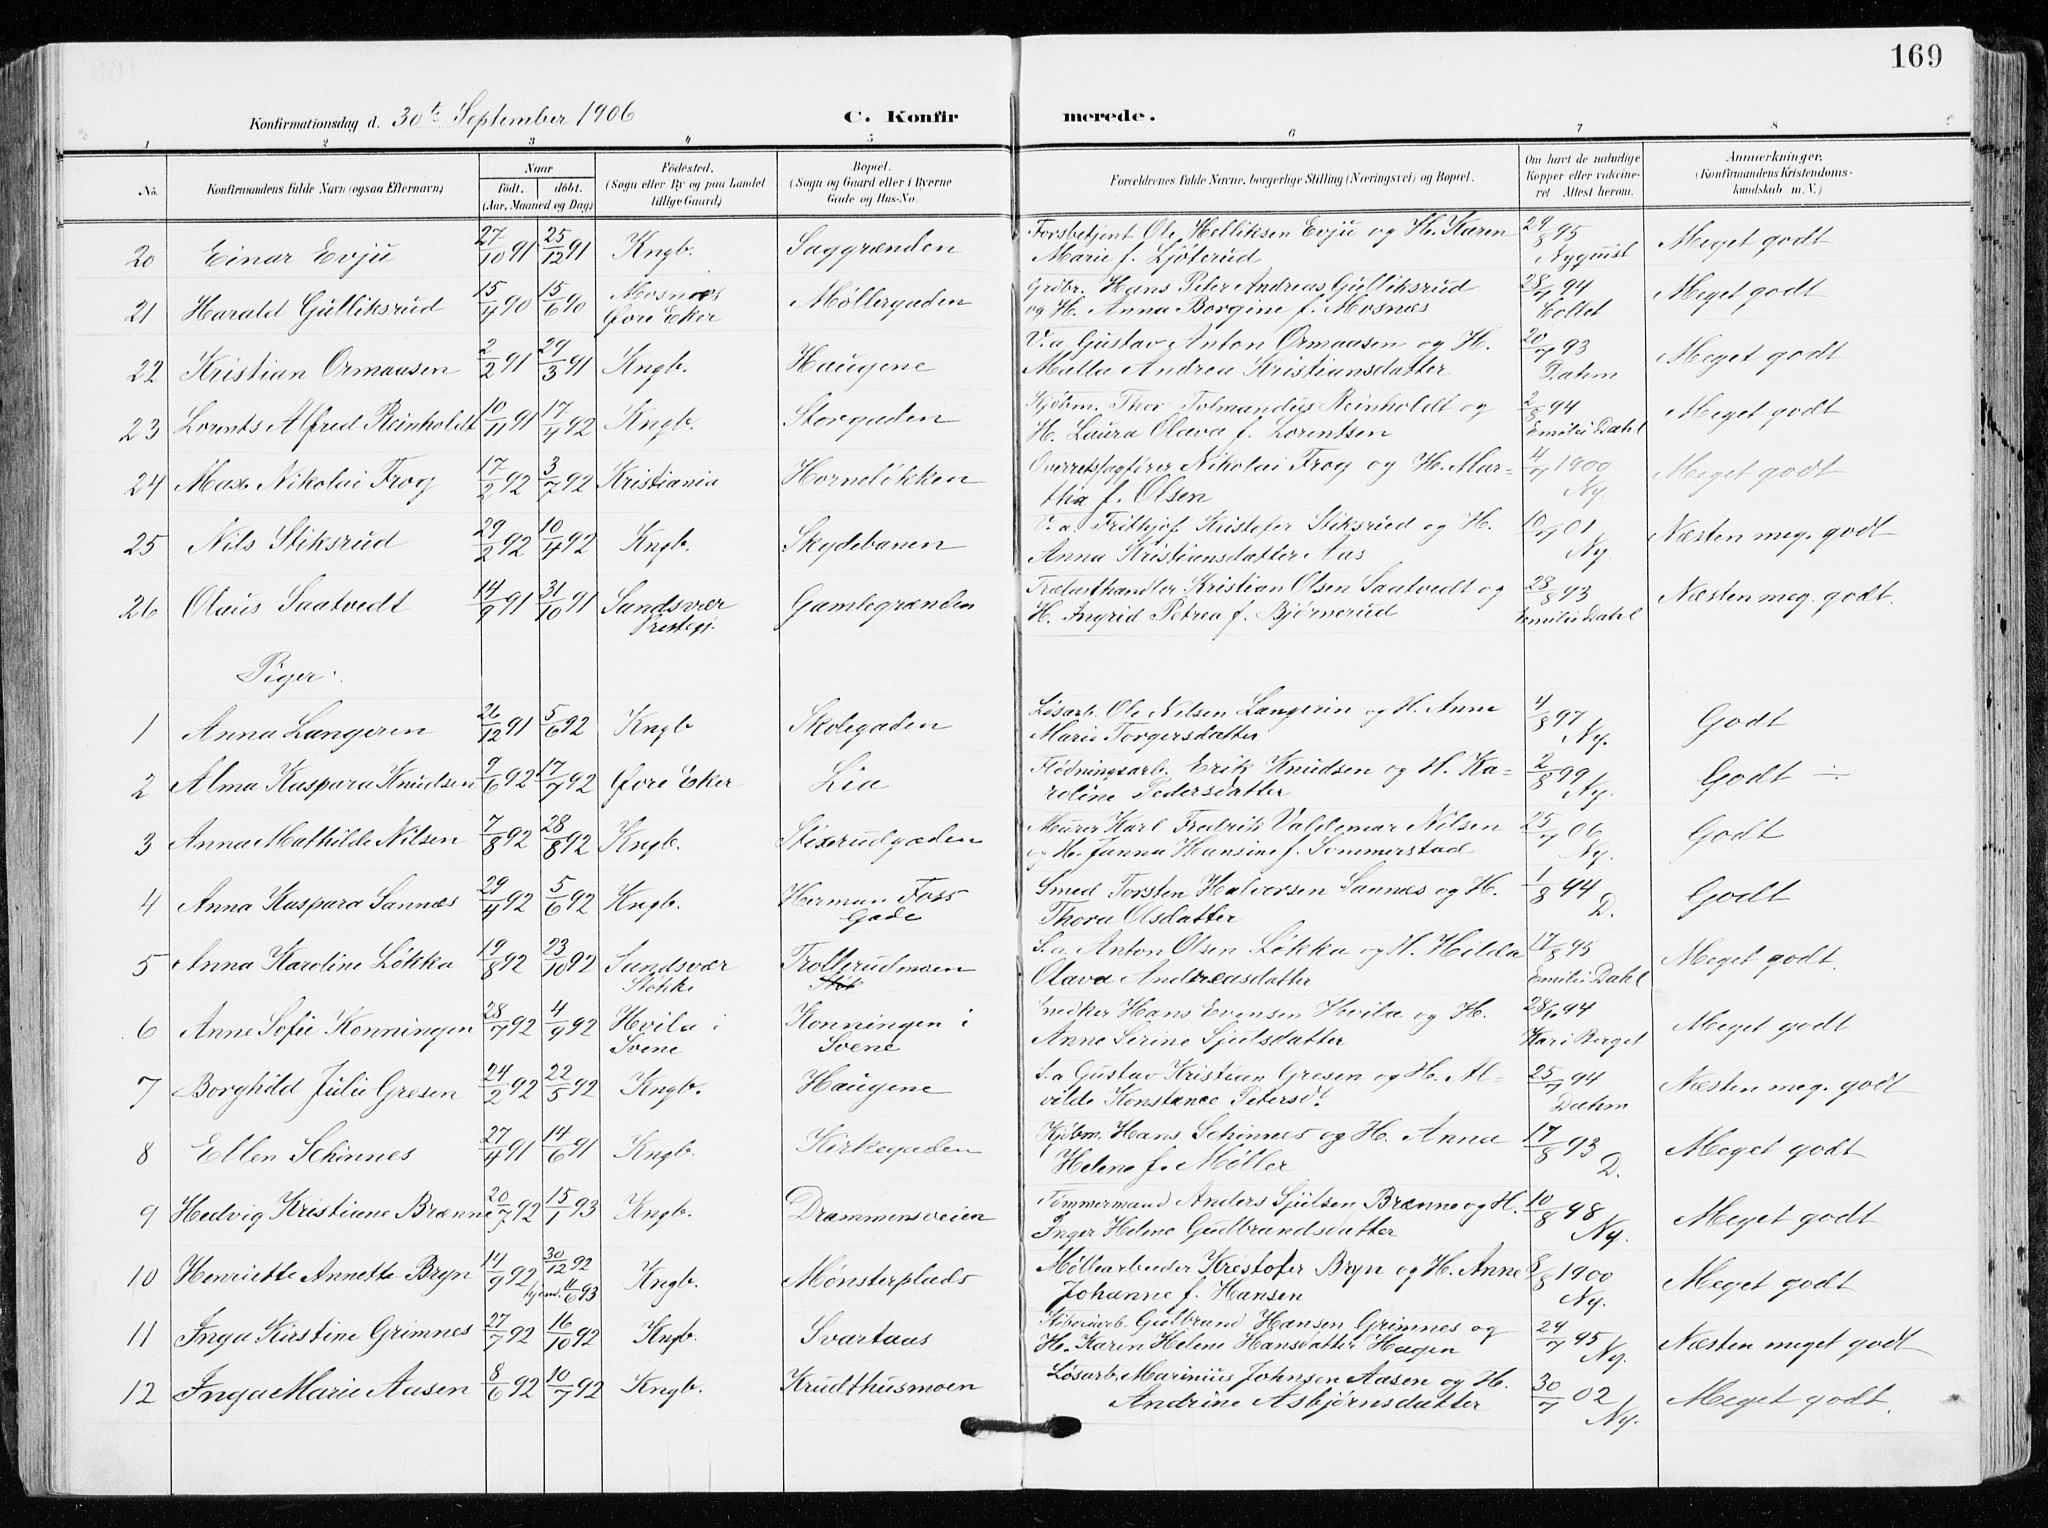 169
Konfirmationsdag d. 30te September 1906 C. Konfirmerede.
1 2 3 4 5 6 7 8
No. Konfirmandens fulde Navn (ogsaa Efternavn) Naar født. døbt. (Aar, Maaned og Dag) Födested. (Sogn eller By og paa Landet tillige Gaard) Bopæl. (Sogn og Gaard eller i Byerne Gade og Hus-No. Forældrenes fulde Navne, borgerlige Stilling (Næringsvei) og Bopæl. Om havt de naturlige Kopper eller vakcineret. Attest herom. Anmærkninger. (Konfirmandens Kristendomskundskab m. V.)
20 Einar Evju 27/10 91 25/12 91 Kngb. Saggrænden Forsbetjent Ole Helliksen Evju og H. Karen 29/8 95 Meget godt
Marie f. Ljøterud Nyquist
21 Harald Gulliksrud 15/4 90 15/6 90 Mosnæs Møllergaden Grdbr. Hans Peter Andreas Gulliksrud 28/7 94 Meget godt
Øvre Eker og H. Anna Borgine f. Mosnæs Collet
22 Kristian Ormaasen 2/2 91 29/3 91 Kngb. Haugene V.a. Gustav Anton Ormaasen og H. 20/7 93 Meget godt
Malla Andrea Kristiansdatter Dahm
23 Lorents Alfred Reinholdt 10/11 91 17/4 92 Kngb. Storgaden Kjøbm. Thor Tolmandus Reinholdt og 2/8 94 Meget godt
H. Laura Olava f. Lorentsen Emilie Dahl
24 Max Nikolai Frog 17/2 92 3/7 92 Kristiania Horneløkken Overretssagfører Nikolai Frog og H. Mar- 4/7 1900 Meget godt
tha f. Olsen Ny.
25 Nils Stiksrud 29/2 92 10/4 92 Kngb. Skydebanen V.a. Frithjof Kristofer Stiksrud og H. 10/7 01 Næsten meg. godt
Anna Kristiansdatter Aas Ny.
26 Olaus Saatvedt 14/9 91 31/10 91 Sandsvær Gamlegrænden Trælasthandler Kristian Olsen Saatvedt og 28/8 93 Næsten meg. godt.
Prestegj. H. Ingrid Petrea f. Bjørnerud Emilie Dahl
Piger:
1 Anna Langeren 26/12 91 5/6 92 Kngb Skolegaden Løsarb. Ole Nilsen Langerin og H. Anne 4/8 97 Godt
Marie Torgersdatter Ny.
2 Alma Kaspara Knudsen 9/6 92 17/7 92 Øvre Eker Lia Flødningsarb. Erik Knudsen og H. Ka- 2/8 99 Godt ÷
roline Pedersdatter Ny.
3 Anna Mathilde Nilsen 7/8 92 28/8 92 Kngb. Stixrudgaden Murer Karl Fredrik Valdemar Nilsen 25/7 06 Godt
og H. Janna Hansine f. Sommerstad Ny.
4 Anna Kaspara Sannæs 29/4 92 5/6 92 Kngb. Herman Foss Smed Torsten Halvorsen Sannæs og H. 1/8 94 Godt
Gade Thora Olsdatter D.
5 Anna Karoline Løkka 19/8 92 23/10 92 Sandsvær Trollerudmoen S.a. Anton Olsen Løkka og H. Hilda 17/8 95 Meget godt.
Støkke Olava Andreasdatter Emilie Dahl
6 Anne Sofie Konningen 28/7 92 4/9 92 Hvila i Konningen i Snedker Hans Evensen Hvila og H. 28/6 94 Meget godt
Svene Svene Anne Serine Sjulsdatter Kari Berget
7 Borghild Julie Gresen 24/2 92 22/5 92 Kngb. Haugene S.a. Gustav Kristian Gresen og H. Al- 25/7 94 Næsten meg. godt
vilde Konstance Petersdt. Dahm
8 Ellen Schinnes 27/4 91 14/6 91 Kngb. Kirkegaden Kjøbm. Hans Schinnes og H. Anna 17/8 93 Meget godt
Helene f. Møller D.
9 Hedvig Kristiane Brænne 20/7 92 15/1 93 Kngb. Drammensveien Tømmermand Anders Sjulsen Brænne og H. 10/8 98 Meget godt
Inger Helene Gudbrandsdatter Ny.
10 Henriette Annette Bryn 14/9 92 30/12 92 Kngb. Mønsterplads Møllearbeider Kristofer Bryn og H. Anne 8/8 1900 Meget godt
hjemd. 11/6 93 Johanne f. Hansen Ny.
11 Inga Kirstine Grimnes 27/7 92 16/10 92 Kngb. Svartaas Gulbrand Hansen Grimnes og 24/7 95 Næsten meget godt
H. Karen Helene Hansdatter Hagen Ny.
12 Inga Marie Aasen 8/6 92 10/7 92 Kngb. Krudthusmoen Løsarb. Marinius Johnsen Aasen og H. 30/7 02 Meget godt.
Andrine Asbjørnsdatter Ny.